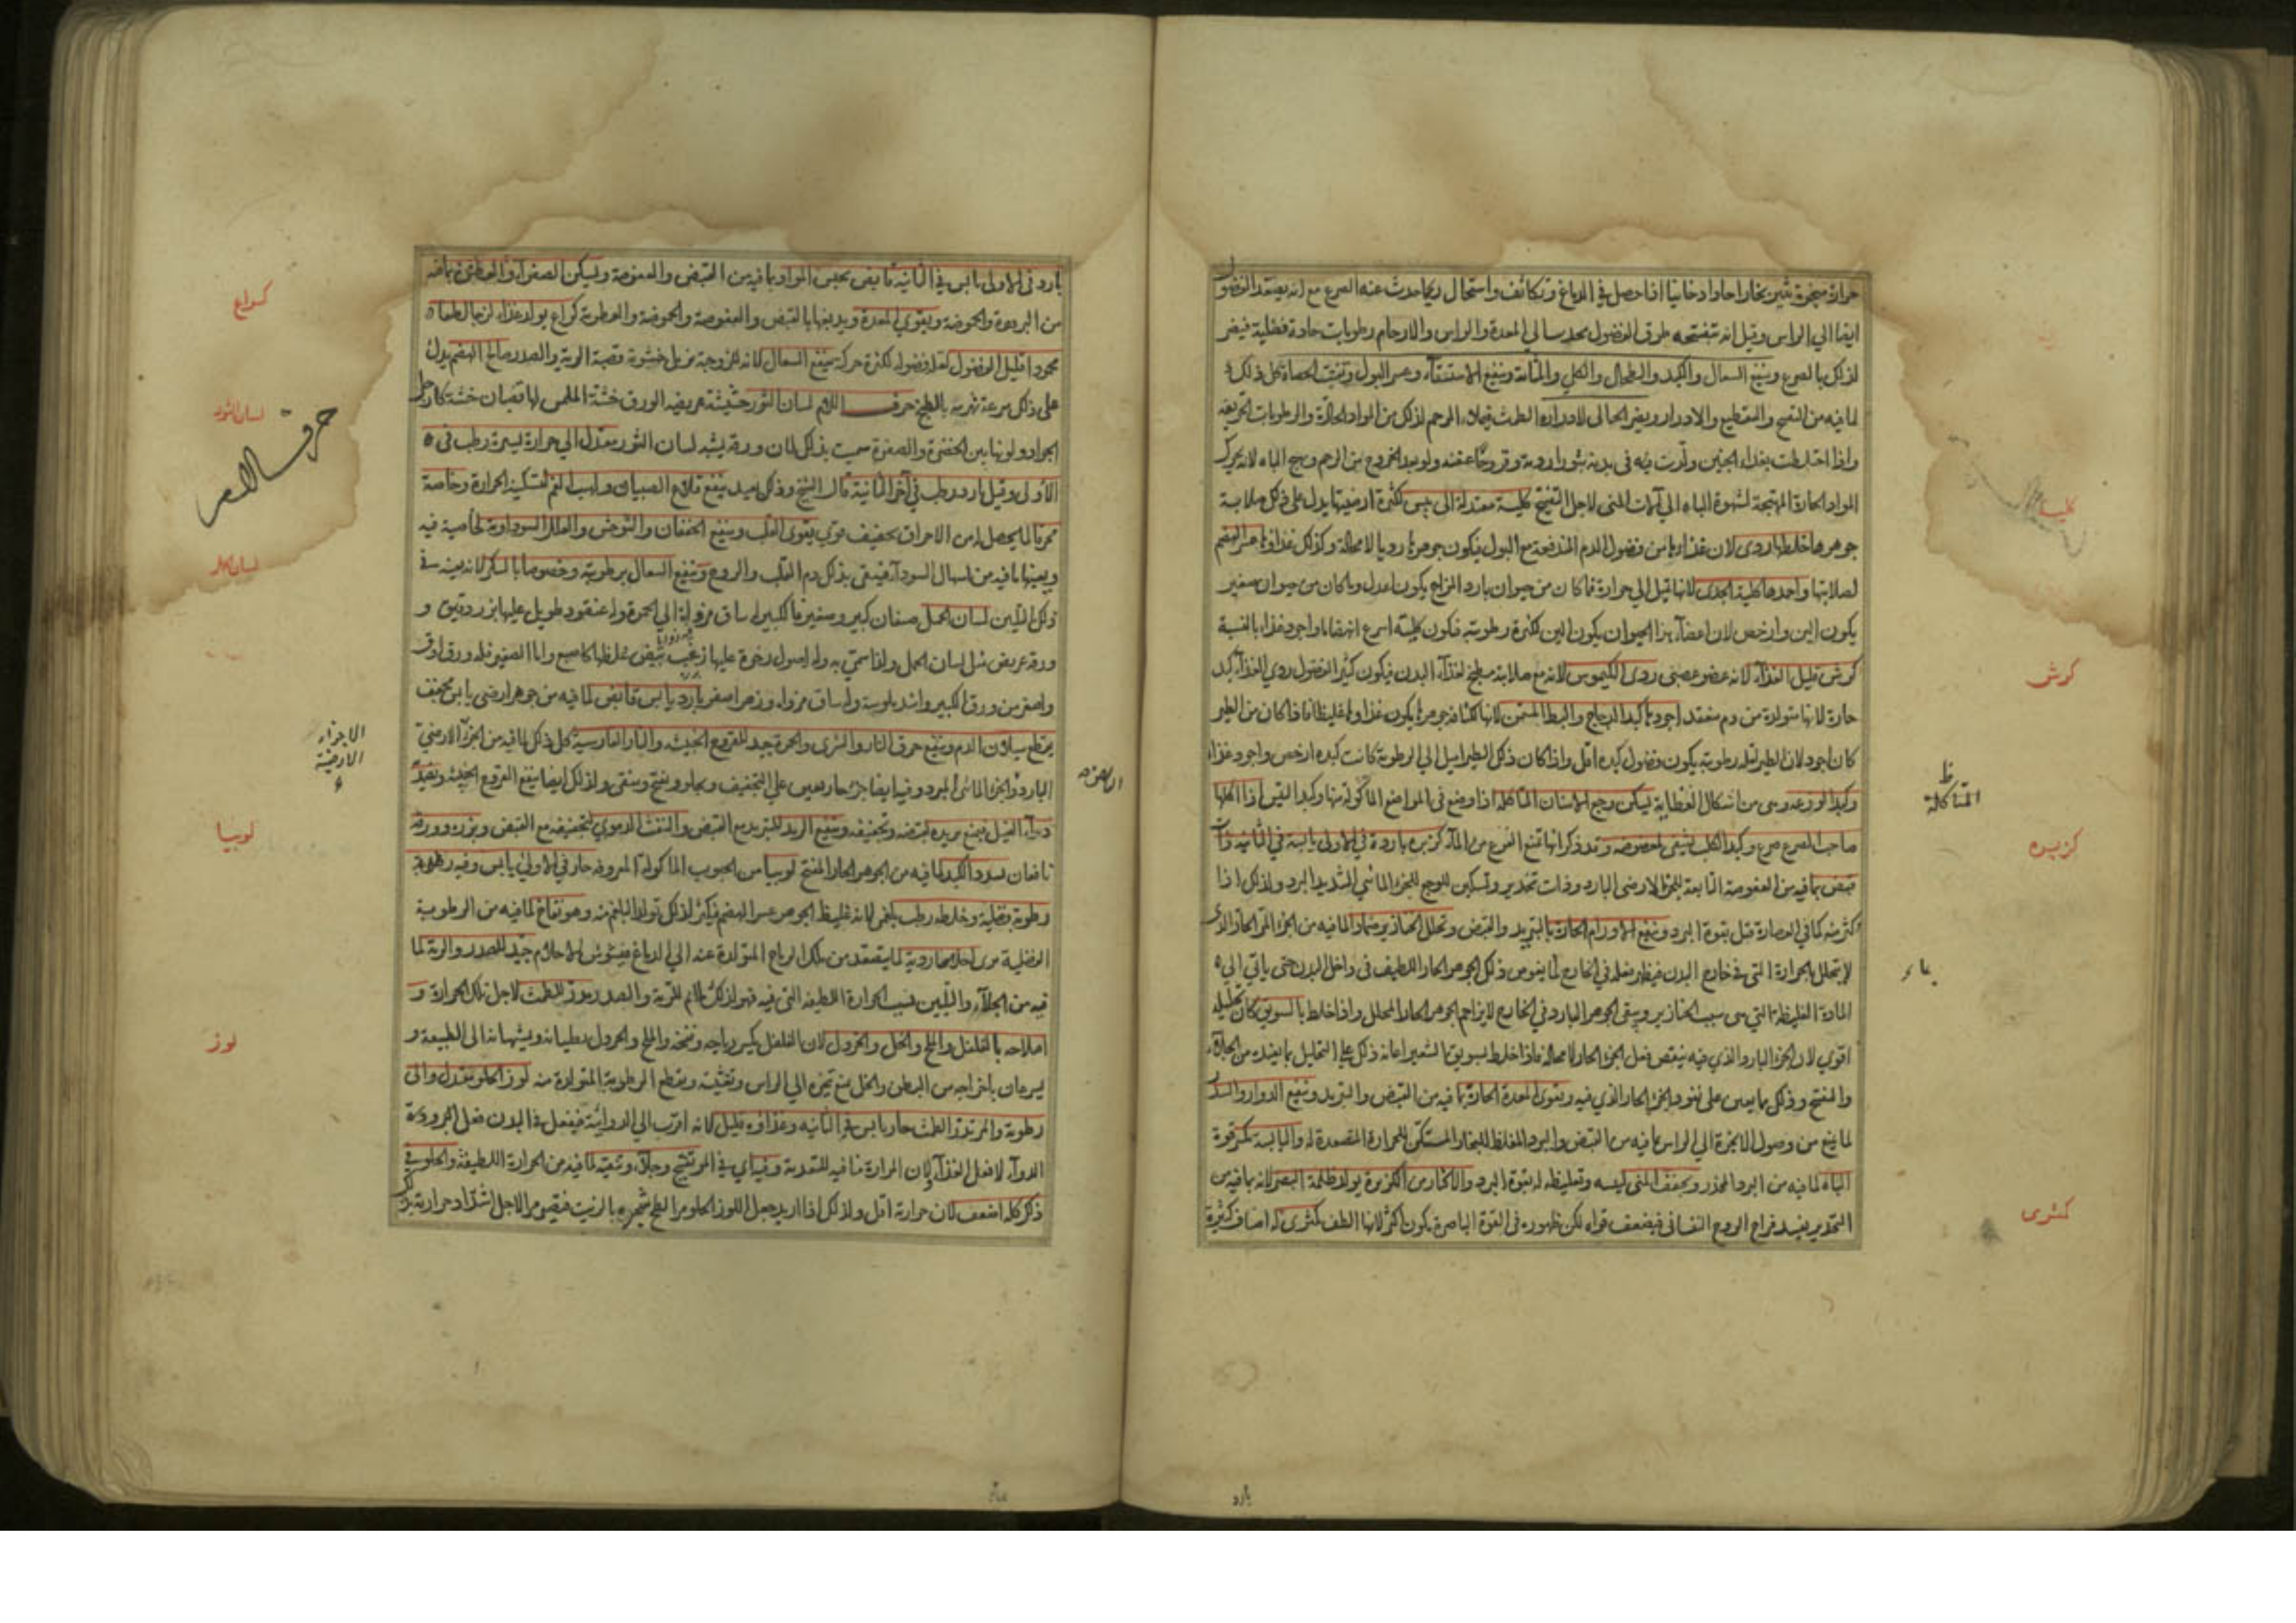 حرارة مبخرة تثير بخارا حادا دخانيا اذا حصل في الدماغ وتكاثف واستحال ريحا حدث عنه الصرع مع انه يصعد الفضول
ايضا الي الراس وقيل انه بتفتيحه طرق الفضول الي المعدة والراس والارحام رطوبات حادة فضلية فيضر
لذلك بالصرع وينفع السعال والكبد والطحال والكلي والمثانة وينفع الاستسقآء وعسر البول وتفتيت الحصاة كل ذلك
لما فيه من التفتيح والتقطيع والادرار ويضر الحبالى لادراره الطمث الرحم لذلك من المواد الحادة والرطوبات الحريفة
واذا اختلطت بغذاء الجنين ولدت فيه في بدنه بثورا ردية وقروحا عفنة ولو بعد الخروج من الرحم ويهيج الباه لانه يحرك
المواد الحارة المهيجة لشهوة الباه الي آلات المني لاجل التفتيح كلية معتدلة الى يبس لكثرة ارضيتها يدل على ذلك صلابة
جوهرها خلطها ردى لان غذاءها من فضول الدم المندفعة مع البول فيكون جوهرها رديا لا محالة وكذلك غذاؤها عسر الهضم
لصلابتها واحمدها كلية الجدى لانها تميل الي حرارة فما كان من حيوان بارد المزاج يكون اعدل وما كان من حيوان صغير
يكون الين وارخص لان اعضآء هذا الحيوان يكون الين لكثرة رطوبته فتكون كليته اسرع انهضاما واجود غذاء بالنسبة
كرش قليل الغذآء لانه عضو عصبي ردى الكيموس لانه مع صلابته مطبخ لغذآء البدن فيكون كثير الفضول ردي الغذآء كبد
حارة لانها متولدة من دم منعقد اجودها كبد الدجاج والبط المسمن لانها لكثافة جوهرها يكون غذاؤها غليظا فاذا كان من الطير
كان اجود لان الطير لقلة رطوبته يكون فضول كبده اقل واذا كان ذلك الطير اميل الي الرطوبة كانت كبده ارخص واجود غذاء
وكبد الوزغه وهى من اشكال العظاية يسكن وجع الاسنان المتاكلة اذا وضع في المواضع الماكولة منها وكبد التيس اذا اكلها
صاحب الصرع صرع وكبد الكلب لشفى لعضوضه وقد ذكر انها تمنع الفزع من المآء كزبره باردة في الاولى يابسة في الثانية وفيها
قبض بما فيه من العفوصة التابعة للجزء الارضى البارد وذات تخدير وتسكين للوجع للجزء المائي الشديد البرد ولذلك اذا
كثر منه كما في العصارة قتل بقوة البرد وينفع الاورام الحارة بالتبريد والقبض وتحلل الخنازير ضمادا لما فيه من الجزء المر الحار والذى
لا يتحلل بحرارة التي في خارج البدن فيظهر فعله في الخارج لما يغوص ذلك الجوهر الحار اللطيف في داخل البدن حتى ياتي الي
المادة الغليظة التي هى سبب الخنازير ويبقى الجوهر البارد في الخارج لا يزاحم الجوهر الحار المحلل واذا خلط بالسويق كان تحليله
اقوي لان الجزء البارد الذي فيه ينقص فعل الجزء الحار لا محالة فاذا خلط بسويق الشعير اعانه ذلك علي التحليل بما يفيده من الجلآء
والمنفتح وذلك مما يعين على نفوذ الجزء الحار الذي فيه ويقوى المعدة الحارة بما فيه من القبض والتبريد وينفع الدوار والسدر
لما يمنع من وصول الابخرة الي الراس بما فيه من القبض والبرد المغلظ للبخار المسكن للحرارة المصعدة له واليابسة تكسر قوة
الباه لما فيه من البرد المخدر ويجفف المني ليبسه وتغليظه له بقوة البرد والاكثار من الكزبرة يولد ظلمة البصر لانه بما فيه من
التخدير يفسد مزاج الروح النفساني فيضعف قواه لكن ظهوره في القوة الباصرة يكون اكثر لانها الطف كمثرى له اصناف كثيرة
كلية
كرش
ظ
المتاكلة
كزبره
كمثرى
بارد
بارد في الاولى يابس في الثانية قابض يحبس المواد بما فيه من القبض والعفوصة ويسكن الصفرآء والعطش بما فيه
من البرودة والحموضة ويقوي المعدة ويدبغها بالقبض والعفوصة والحموضة والعطرية كراع يولد غذاء لزجا لطيفا
محمودا قليل الفضول لقلة فضوله لكثرة حركته ينفع السعال لانه للزوجته يزيل خشونة قصبة الرية والصدر صالح الهضم يدل
على ذلك سرعة تهريه بالطبخ حرف اللام لسان الثور حشيشة عريضة الورق خشنة الملمس لها قضبان خشنة كارجل
الجراد ولونها بين الخضرة والصفرة سميت بذلك لان ورقه يشبه لسان الثور معتدل الي حرارة يسيرة رطب في
الاولى وقيل بارد رطب في آخر الثانية قال الشيخ وذلك بعيد ينفع قلاع الصبيان ولهيب الفم لتسكينه الحرارة وخاصة
محرقا لما يحصل له من الاحراق تجفيف قوي يقوى القلب وينفع الخفقان والتوحش والعلل السوداوية لخاصية فيه
ويعينها ما فيه من اسهال السودآء فينقى بذلك دم القلب والروح وينفع السعال برطوبته وخصوصا بالسكر لانه يعينه في
ذلك التليين لسان الحمل صنفان كبير وصغير فالكبير له ساق مزواة الي الحمرة وله عنقود طويل عليها بزر دقيق و
ورقه عريض مثل لسان الحمل ولذا سمي به وله اصول رخوة عليها زغب شقق غلظها كاصبع واما الصغير فله ورق ادق
واصغر من ورق الكبير واشد ملوسة وله ساق مزواة وزهر اصفر بارد يابس قابض لما فيه من جوهر ارضي يابس مجفف
يقطع سيلان الدم وينفع حرق النار والشرى والحمرة جيد للقروح الخبيثة والنار الفارسية كل ذلك لما فيه من الجزء الارضي
البارد والجزء المائي المبرد وفيه ايضا جزء حار يعين على التجفيف ويجلو ويفتح وينقى ولذلك ايضا ينفع القروح الخبيثة ويضمد
دآء الفيل فيمنع تزيده لقبضه وتجفيفه وينفع الربد للتبريد مع القبض والنفث الدموي لتجفيفه مع القبض وبزره وورقه
نافعان لسدد الكبد لما فيه من الجوهر الحار المفتح لوبيا من الحبوب الماكولة المعروفة حار في الاولي يابس وفيه رطوبة
رطوبة فضلية وخلطه رطب بلغمى لانه غليظ الجوهر عسر الهضم فيكثر لذلك تولد البلغم منه وهو نفاخ لما فيه من الرطوبة
الفضلية يرى احلاما ردية لما يتصعد من تلك الرياح المتولدة عنه الي الدماغ فيشوش الاحلام جيد للصدر والرية لما
فيه من الجلآء والتليين بسبب الحرارة اللطيفة التي فيه فهو لذلك ملائم للرية والصدر يدر الطمث لاجل تلك الحرارة و
اصلاحه بالفلفل والملح والخل والخردل لان الفلفل يكسر رياحه ونفخه والملح والخردل يعطيانه ويشهيانه الى الطبيعة و
يسرعان باخراجه من البطن والخل يمنع تبخره الي الراس وتغثيته ويقطع الرطوبة المتولدة منه لوز الحلو معتدل والى
رطوبة والمر حار يابس في الثانية وغذاؤه قليل لانه اقرب الي الدوائية فيفعل في البدن فعل
الدوآء لا فعل الغذآء لان المرارة منافية للتغذية وفيه اي في المر تفتيح وجلآء وتنقية لما فيه من الحرارة اللطيفة والحلو في
ذلك كله اضعف لان حرارته اقل ولذلك اذا اريد جعل اللوز الحلو مرا طلي شجره بالزيت فيصير مرا لاجل اشتداد حرارته
كراع
لسان الثور
حرف اللام
لسان الحمل
الاجزاء
الارضية
لوبيا
لوز